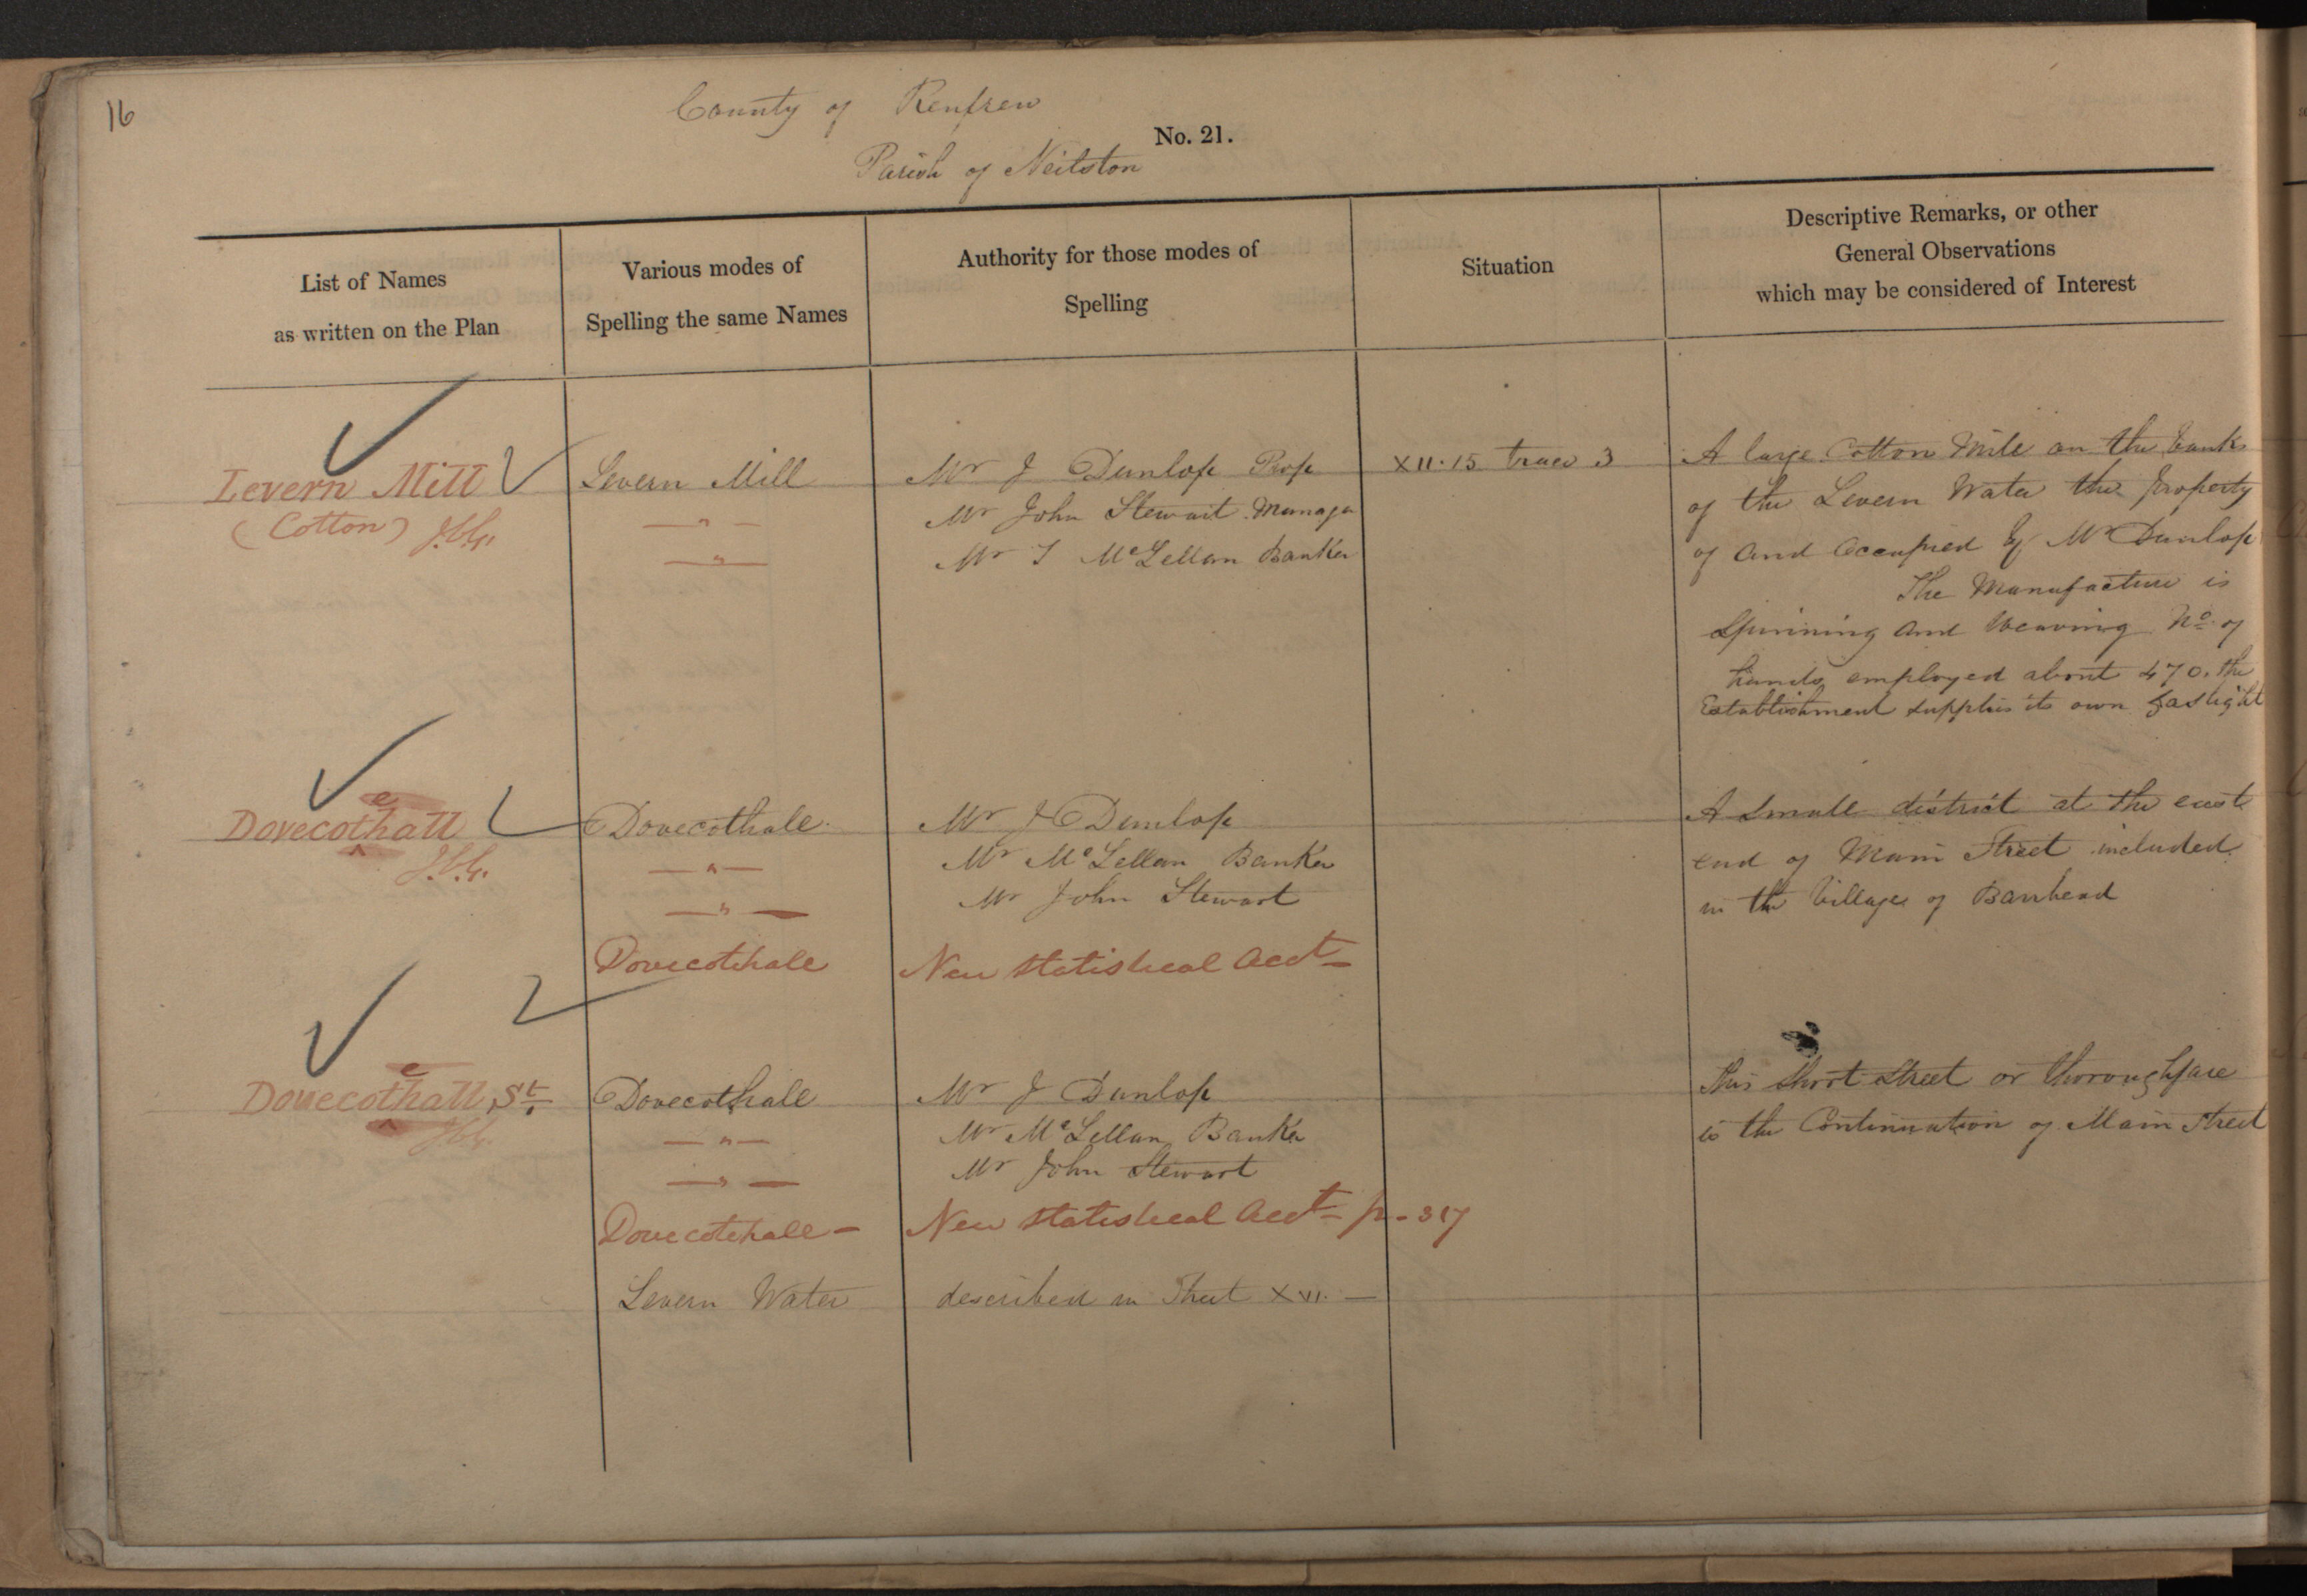 16
County of Renfrew
No. 21.
Parish of Neilston
List of Names
as written on the Plan
Various modes of
Spelling the same Names
Authority for those modes of
Spelling
Situation
Descriptive Remarks, or other
General Observations
which may be considered of Interest
Levern Mill
(Cotton)
Levern Mill
— " —
— " —
Mr J Dunlop Prop
Mr John Stewart Manager
Mr J McLellan Banker
XII.15 trace 3
A large Cotton Mill on the banks
of the Levern Water the property
of and Occupied by Mr Dunlop
The Manufacture is
Spinning and Weaving No. of
hands employed about 470. the
Establishment supplies its own gaslight
Dovecotehall
Dovecothall
— " —
— " —
Dovecotehall
Mr J Dunlop
Mr McLellan Banker
Mr John Stewart
New Statistical Acct —
A small district at the east
end of Main Street included
in the Village of Barrhead
Dovecotehall St.
Dovecothall
— " —
— " —
Dovecotehall —
Mr J Dunlop
Mr McLellan Banker
Mr John Stewart
New Statistical Acct — p. 317
This short Street or thoroughfare
is the Continuation of Main Street
Levern Water
described in Sheet XVI. —